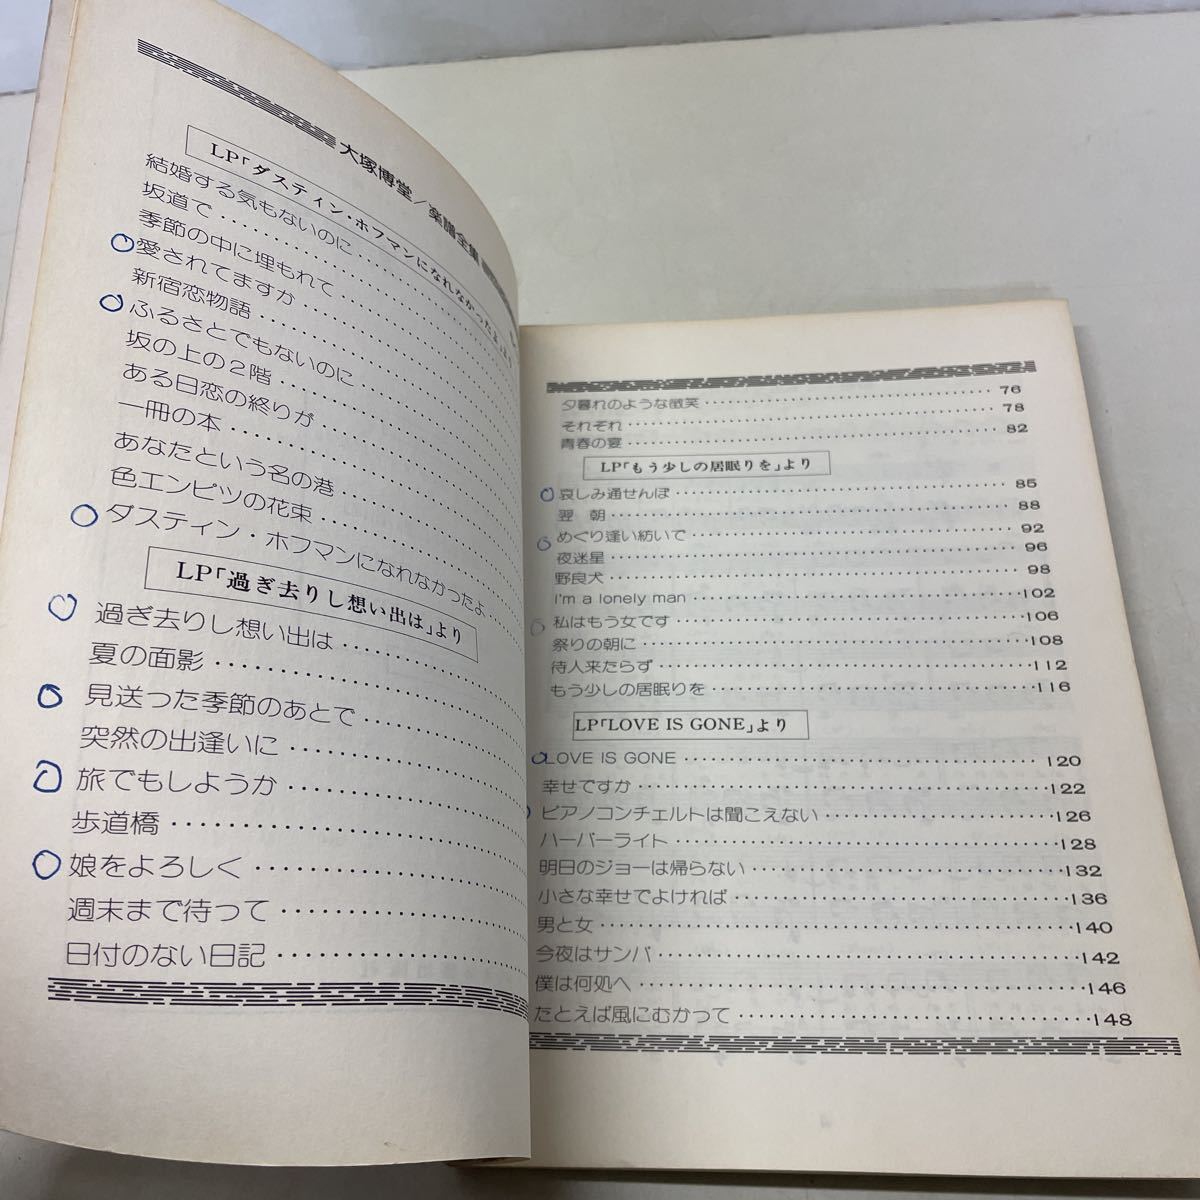 大塚博堂/楽譜全集
LP「ダスティン・ホフマンになれなかったよ」より
結婚する気もないのに
坂道で
季節の中に埋もれて
愛されてますか
新宿恋物語
ふるさとでもないのに
坂の上の2階
ある日恋の終りが
一冊の本
あなたという名の港
色エンピツの花束
ダスティン・ホフマンになれなかったよ
LP「過ぎ去りし想い出は」より
過ぎ去りし想い出は
夏の面影
見送った季節のあとで
突然の出逢いに
旅でもしようか
歩道橋
娘をよろしく
週末まで待って
日付のない日記
夕暮れのような微笑 76
それぞれ 78
青春の宴 82
LP「もう少しの居眠りを」より
哀しみ通せんぼ 85
翌 朝 88
めぐり逢い紡いで 92
夜迷星 96
野良犬 98
I'm a lonely man 102
私はもう女です 106
祭りの朝に 108
待人来たらず 112
もう少しの居眠りを 116
LP「LOVE IS GONE」より
LOVE IS GONE 120
幸せですか 122
ピアノコンチェルトは聞こえない 126
ハーバーライト 128
明日のジョーは帰らない 132
小さな幸せでよければ 136
男と女 140
今夜はサンバ 142
僕は何処へ 146
たとえば風にむかって 148